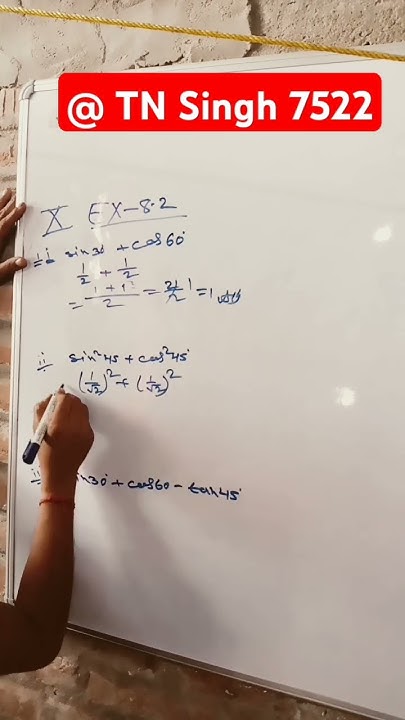 @ TN Singh 7522
X EX-8.2
i sin30 + cos60°
1/2 + 1/2
= 1+1/2 = 2/2 1 = 1
ii sin²45 + cos²45°
(1/√2)² + (1/√2)²
in30° + cos60 - tan45°